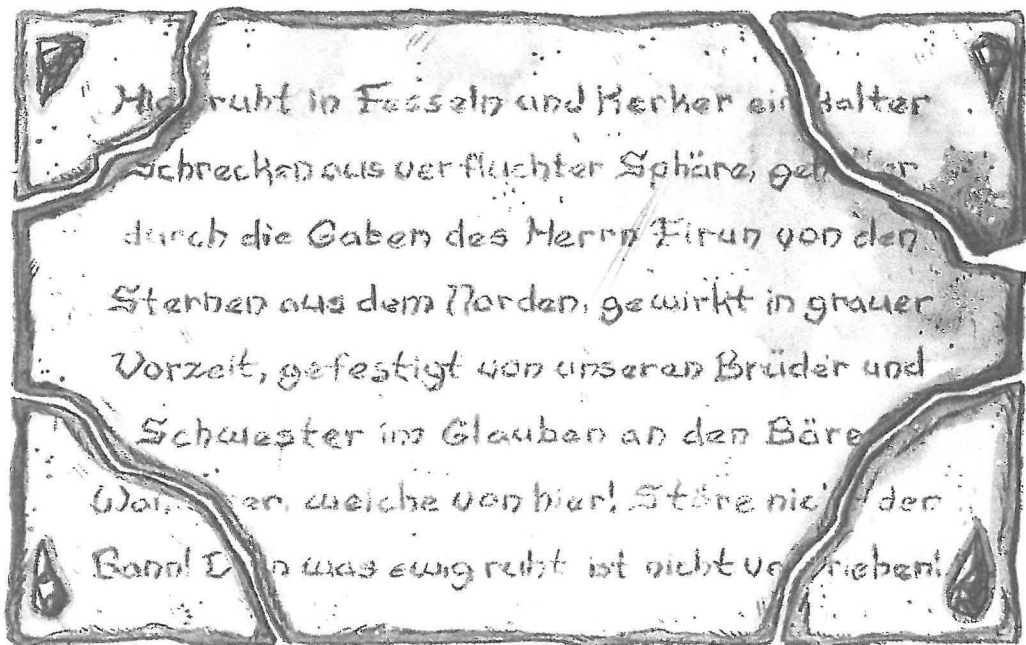 Hier ruht in Fesseln und Kerker ein kalter
Schrecken aus verfluchter Sphäre,
durch die Gaben des Herrn Firun von den
Sternen aus dem Norden, gewirkt in grauer
Vorzeit, gefestigt von unseren Brüder und
Schwester im Glauben an den
weiche von hier! Störe nicht den
Bann! Denn was ewig ruht ist nicht vertrieben!